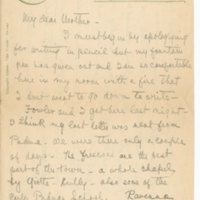 My dear Mother -
I must begin by apologizing
for writing in pencil but my fountain
pen has given out and I am so comfortable
here in my room with a fire that
I don't want to go down to write -
Fowler and I got here last night -
I think my last letter was sent from
Padua - We were there only a couple
of days - The frescoes are the best
part of the town - a whole chapel
by Giotto - also some of the
early Paduan School. Ravenna